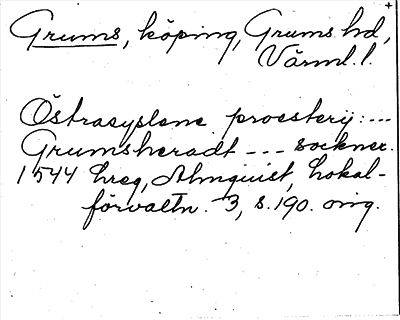 Grums, köping, Grums hd,
Värml. l.
Östrasyslene proesterij: ---
Grumsheradt --- sockner.
1544 hreg, Almquist, Lokal-
förvaltn. 3, s. 190. orig.